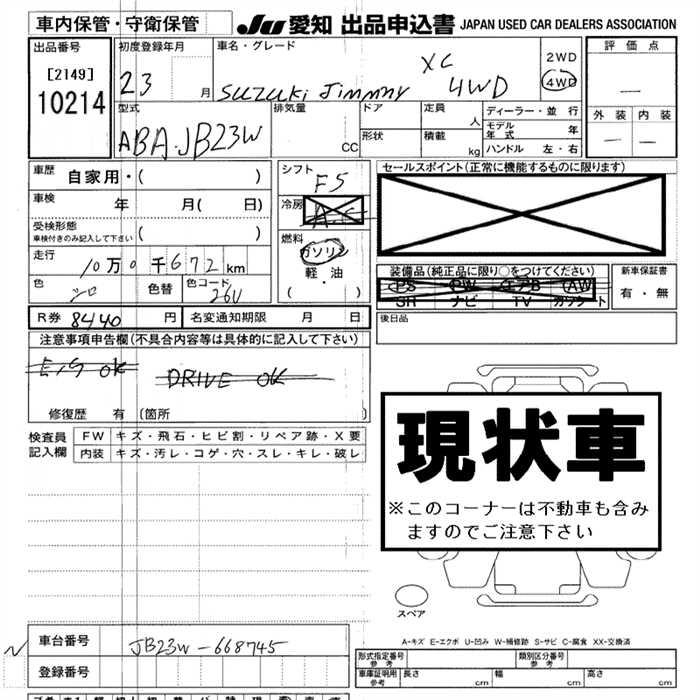 車内保管・守衛保管
JU 愛知 出品申込書 JAPAN USED CAR DEALERS ASSOCIATION
出品番号
[2149]
10214
初度登録年月
23 月
車名・グレード
XC
Suzuki Jimmny 4WD
2WD
4WD
評価点
—
外装 内装
— —
型式
ABA-JB23W
排気量
CC
ドア
形状
定員
人
積載
kg
ディーラー・並行
モデル年式 年
ハンドル 左・右
車歴 自家用・( )
車検 年 月( 日)
受検形態
車検付きのみ記入して下さい ( )
走行 10万0千672km
色 シロ 色替 色コード 26U
シフト F5
冷房 A.C
燃料
ガソリン
軽・油
( ・ )
セールスポイント(正常に機能するものに限ります)
装備品(純正品に限り○をつけてください)
PS PW エアB AW
SR ナビ TV カワシート
新車保証書
有・無
R券 8440 円 名変通知期限 月 日
後日品
注意事項申告欄(不具合内容等は具体的に記入して下さい)
E/G OK DRIVE OK
修復歴 有 (箇所 )
検査員記入欄
FW キズ・飛石・ヒビ割・リペア跡・X要
内装 キズ・汚レ・コゲ・穴・スレ・キレ・破レ
現状車
※このコーナーは不動車も含み
ますのでご注意下さい
スペア
A-キズ E-エクボ U-凹み W-補修跡 S-サビ C-腐食 XX-交換済
車台番号 JB23W-668745
登録番号
形式指定番号 参考
類別区分番号 参考
車庫証明用 参考 長さ cm 幅 cm 高さ cm